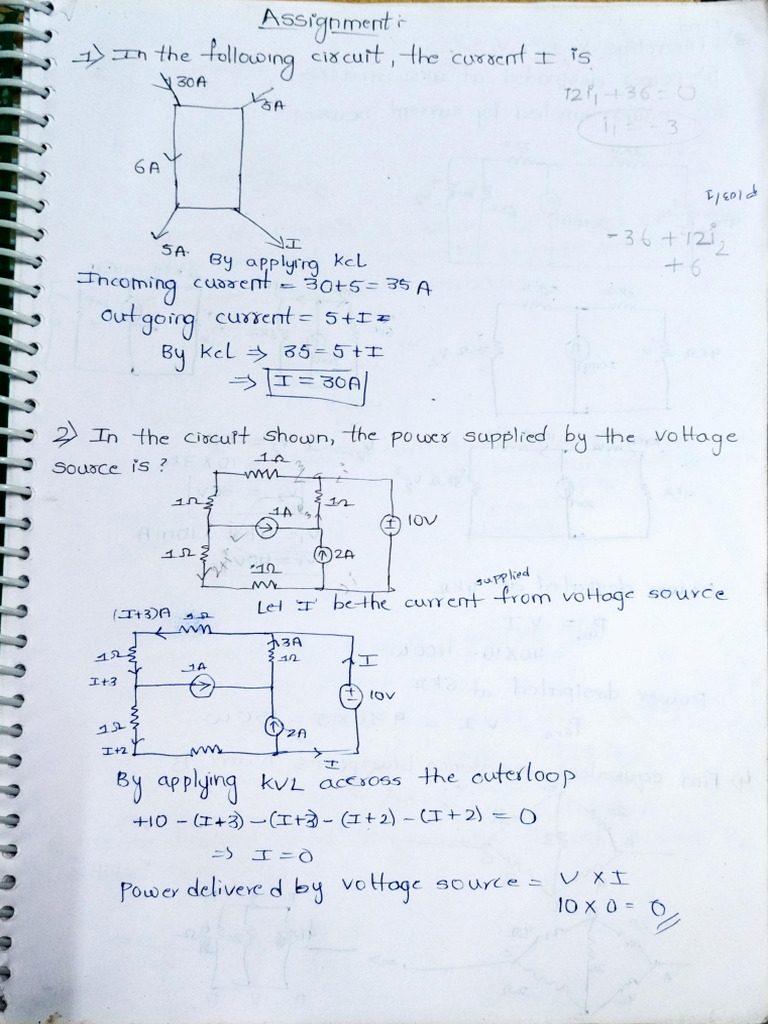 Assignment :-
1) In the following circuit, the current I is
30A
5A
12i₁ + 36 = 0
i₁ = -3
6A
-36 + 12i₂
+6
5A.
I
By applying KCL
Incoming current = 30+5 = 35A
Outgoing current = 5+I
By KCL ⇒ 35 = 5+I
⇒ I = 30A
2) In the circuit shown, the power supplied by the voltage
source is ?
1Ω
1Ω
1A
1Ω
10V
1Ω
2A
1Ω
Let 'I' be the current supplied from voltage source
(I+3)A
1Ω
3A
1Ω
1Ω
I
I+3
1A
10V
1Ω
2A
I+2
I
By applying KVL accross the outerloop
+10 - (I+3) - (I+3) - (I+2) - (I+2) = 0
⇒ I = 0
Power delivered by voltage source = V × I
10 × 0 = 0